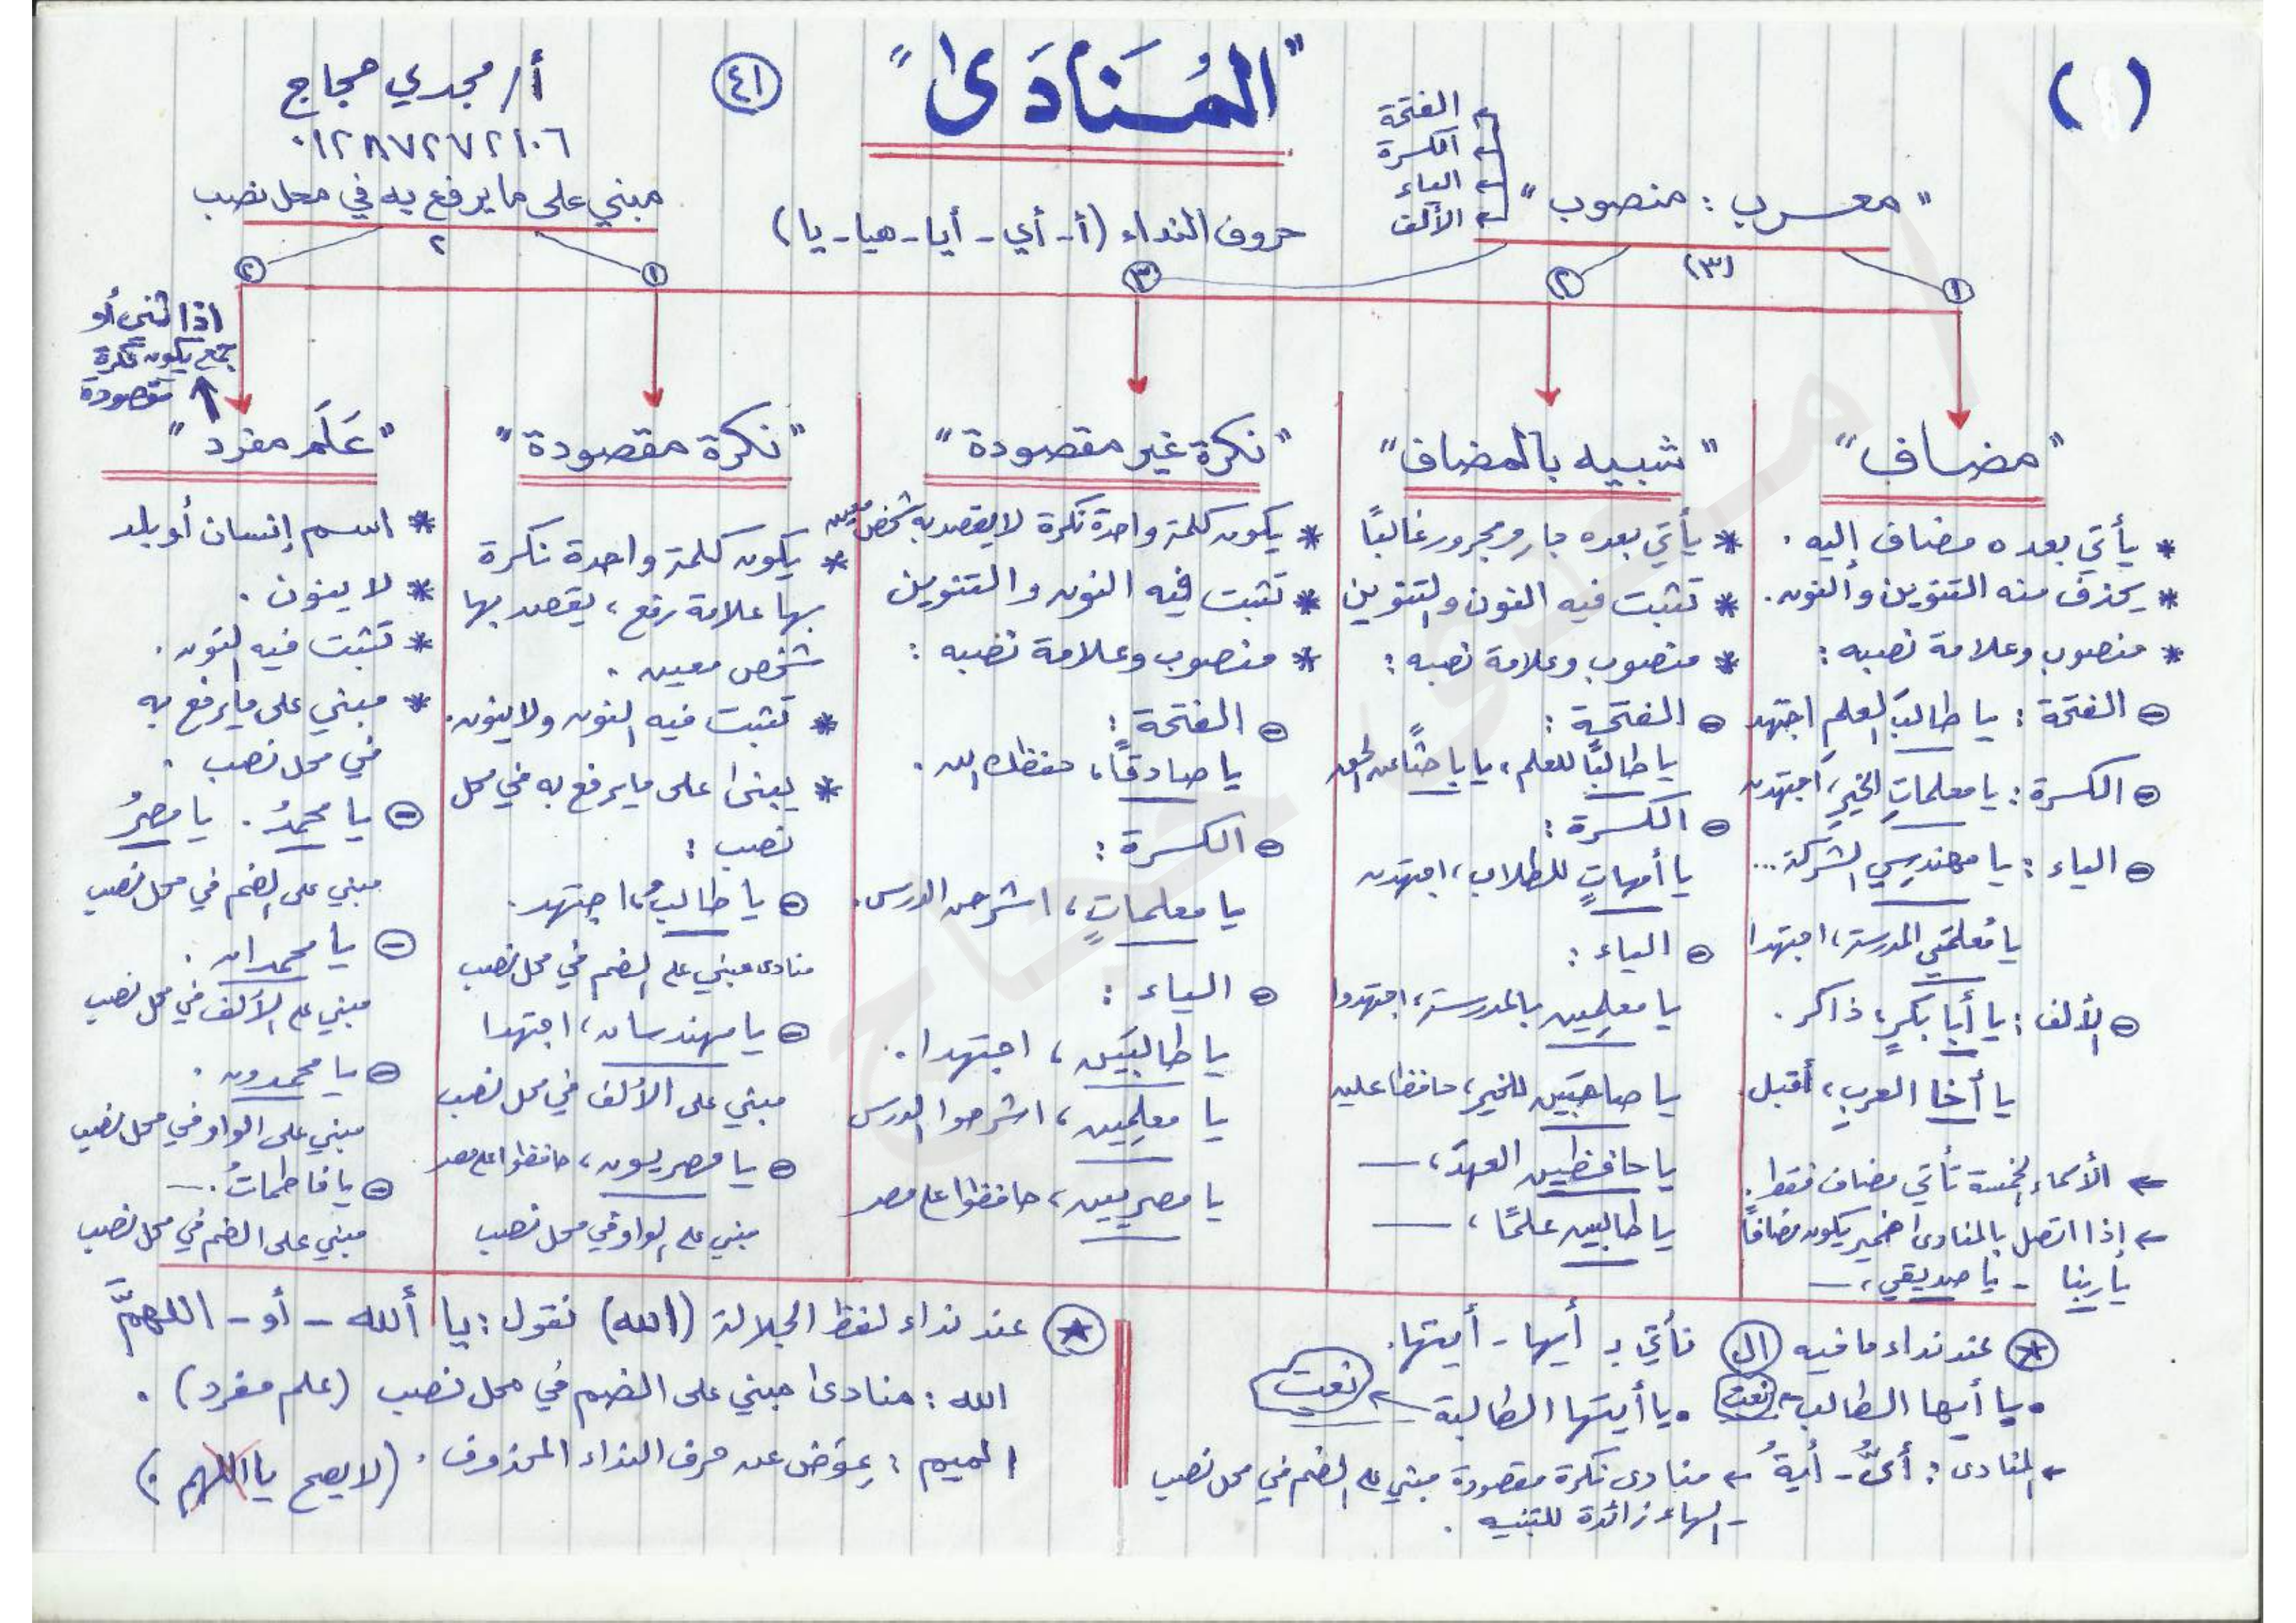 (١)
"المُنَادَى"
٤١
أ/ مجدي حجاج
٠١٢٨٧٢٧٢١٠٦
"معرب : منصوب"
الفتحة
الكسرة
الياء
الألف
(٣)
حروف النداء (أ - أي - أيا - هيا - يا)
مبني على ما يرفع به في محل نصب
٢
١
٢
٣
١
٢
إذا ثني أو
جمع يكون نكرة
مقصودة
"مضاف"
* يأتي بعده مضاف إليه .
* يحذف منه التنوين والنون .
* منصوب وعلامة نصبه :
الفتحة : يا طالبَ العلمِ اجتهد
الكسرة : يا معلماتِ الخيرِ، اجتهدن
الياء : يا مهندسِي الشركة ...
يا مُعلمَتي المدرسة، اجتهدا
الألف : يا أبا بكرٍ، ذاكر .
يا أخا العرب، أقبل .
← الأسماء الخمسة تأتي مضاف فقط .
← إذا اتصل بالمنادى ضمير يكون مضافًا
يا ربنا - يا صديقي، —
"شبيه بالمضاف"
* يأتي بعده جار ومجرور غالبًا
* تثبت فيه النون والتنوين
* منصوب وعلامة نصبه :
الفتحة :
يا طالبًا للعلم، يا باحثًا عن الحق
الكسرة :
يا أمهاتٍ للطلاب، اجتهدن
الياء :
يا معلِمين بالمدرسة، اجتهدوا
يا صاحبَين للخير، حافظا عليه
يا حافظين العهدَ، —
يا طالبين علمًا، —
"نكرة غير مقصودة"
* يكون كلمة واحدة نكرة لا يقصد به شخص معين
* تثبت فيه النون والتنوين
* منصوب وعلامة نصبه :
الفتحة :
يا صادقًا، حفظك الله .
الكسرة :
يا معلماتٍ، اشرحن الدرس .
الياء :
يا طالبَين، اجتهدا .
يا معلِمين، اشرحوا الدرس
يا مصريين، حافظوا على مصر
"نكرة مقصودة"
* يكون كلمة واحدة نكرة
بها علامة رفع، يقصد بها
شخص معين .
* تثبت فيه النون ولا ينون .
* يبنى على ما يرفع به في محل
نصب :
يا طالبُ، اجتهد .
منادى مبني على الضم في محل نصب
يا مهندسان، اجتهدا
مبني على الألف في محل نصب
يا مصريون، حافظوا على مصر
مبني على الواو في محل نصب
"عَلَم مفرد"
* اسم إنسان أو بلد
* لا ينون .
* تثبت فيه النون .
* مبني على ما يرفع به
في محل نصب .
يا محمدُ . يا مصرُ
مبني على الضم في محل نصب
يا محمدان .
مبني على الألف في محل نصب
يا محمدون .
مبني على الواو في محل نصب
يا فاطماتُ . —
مبني على الضم في محل نصب
عند نداء ما فيه ال نأتي بـ أيها - أيتها .
• يا أيها الطالب ← نعت • يا أيتها الطالبة ← نعت
← المنادى : أيُّ - أيةُ ← منادى نكرة مقصودة مبني على الضم في محل نصب
- الهاء زائدة للتنبيه .
عند نداء لفظ الجلالة (الله) نقول : يا ألله - أو - اللهمَّ
الله : منادى مبني على الضم في محل نصب (علم مفرد) .
الميم : عِوَض عن حرف النداء المحذوف . (لا يصح يا اللهم .)
مجدي حجاج